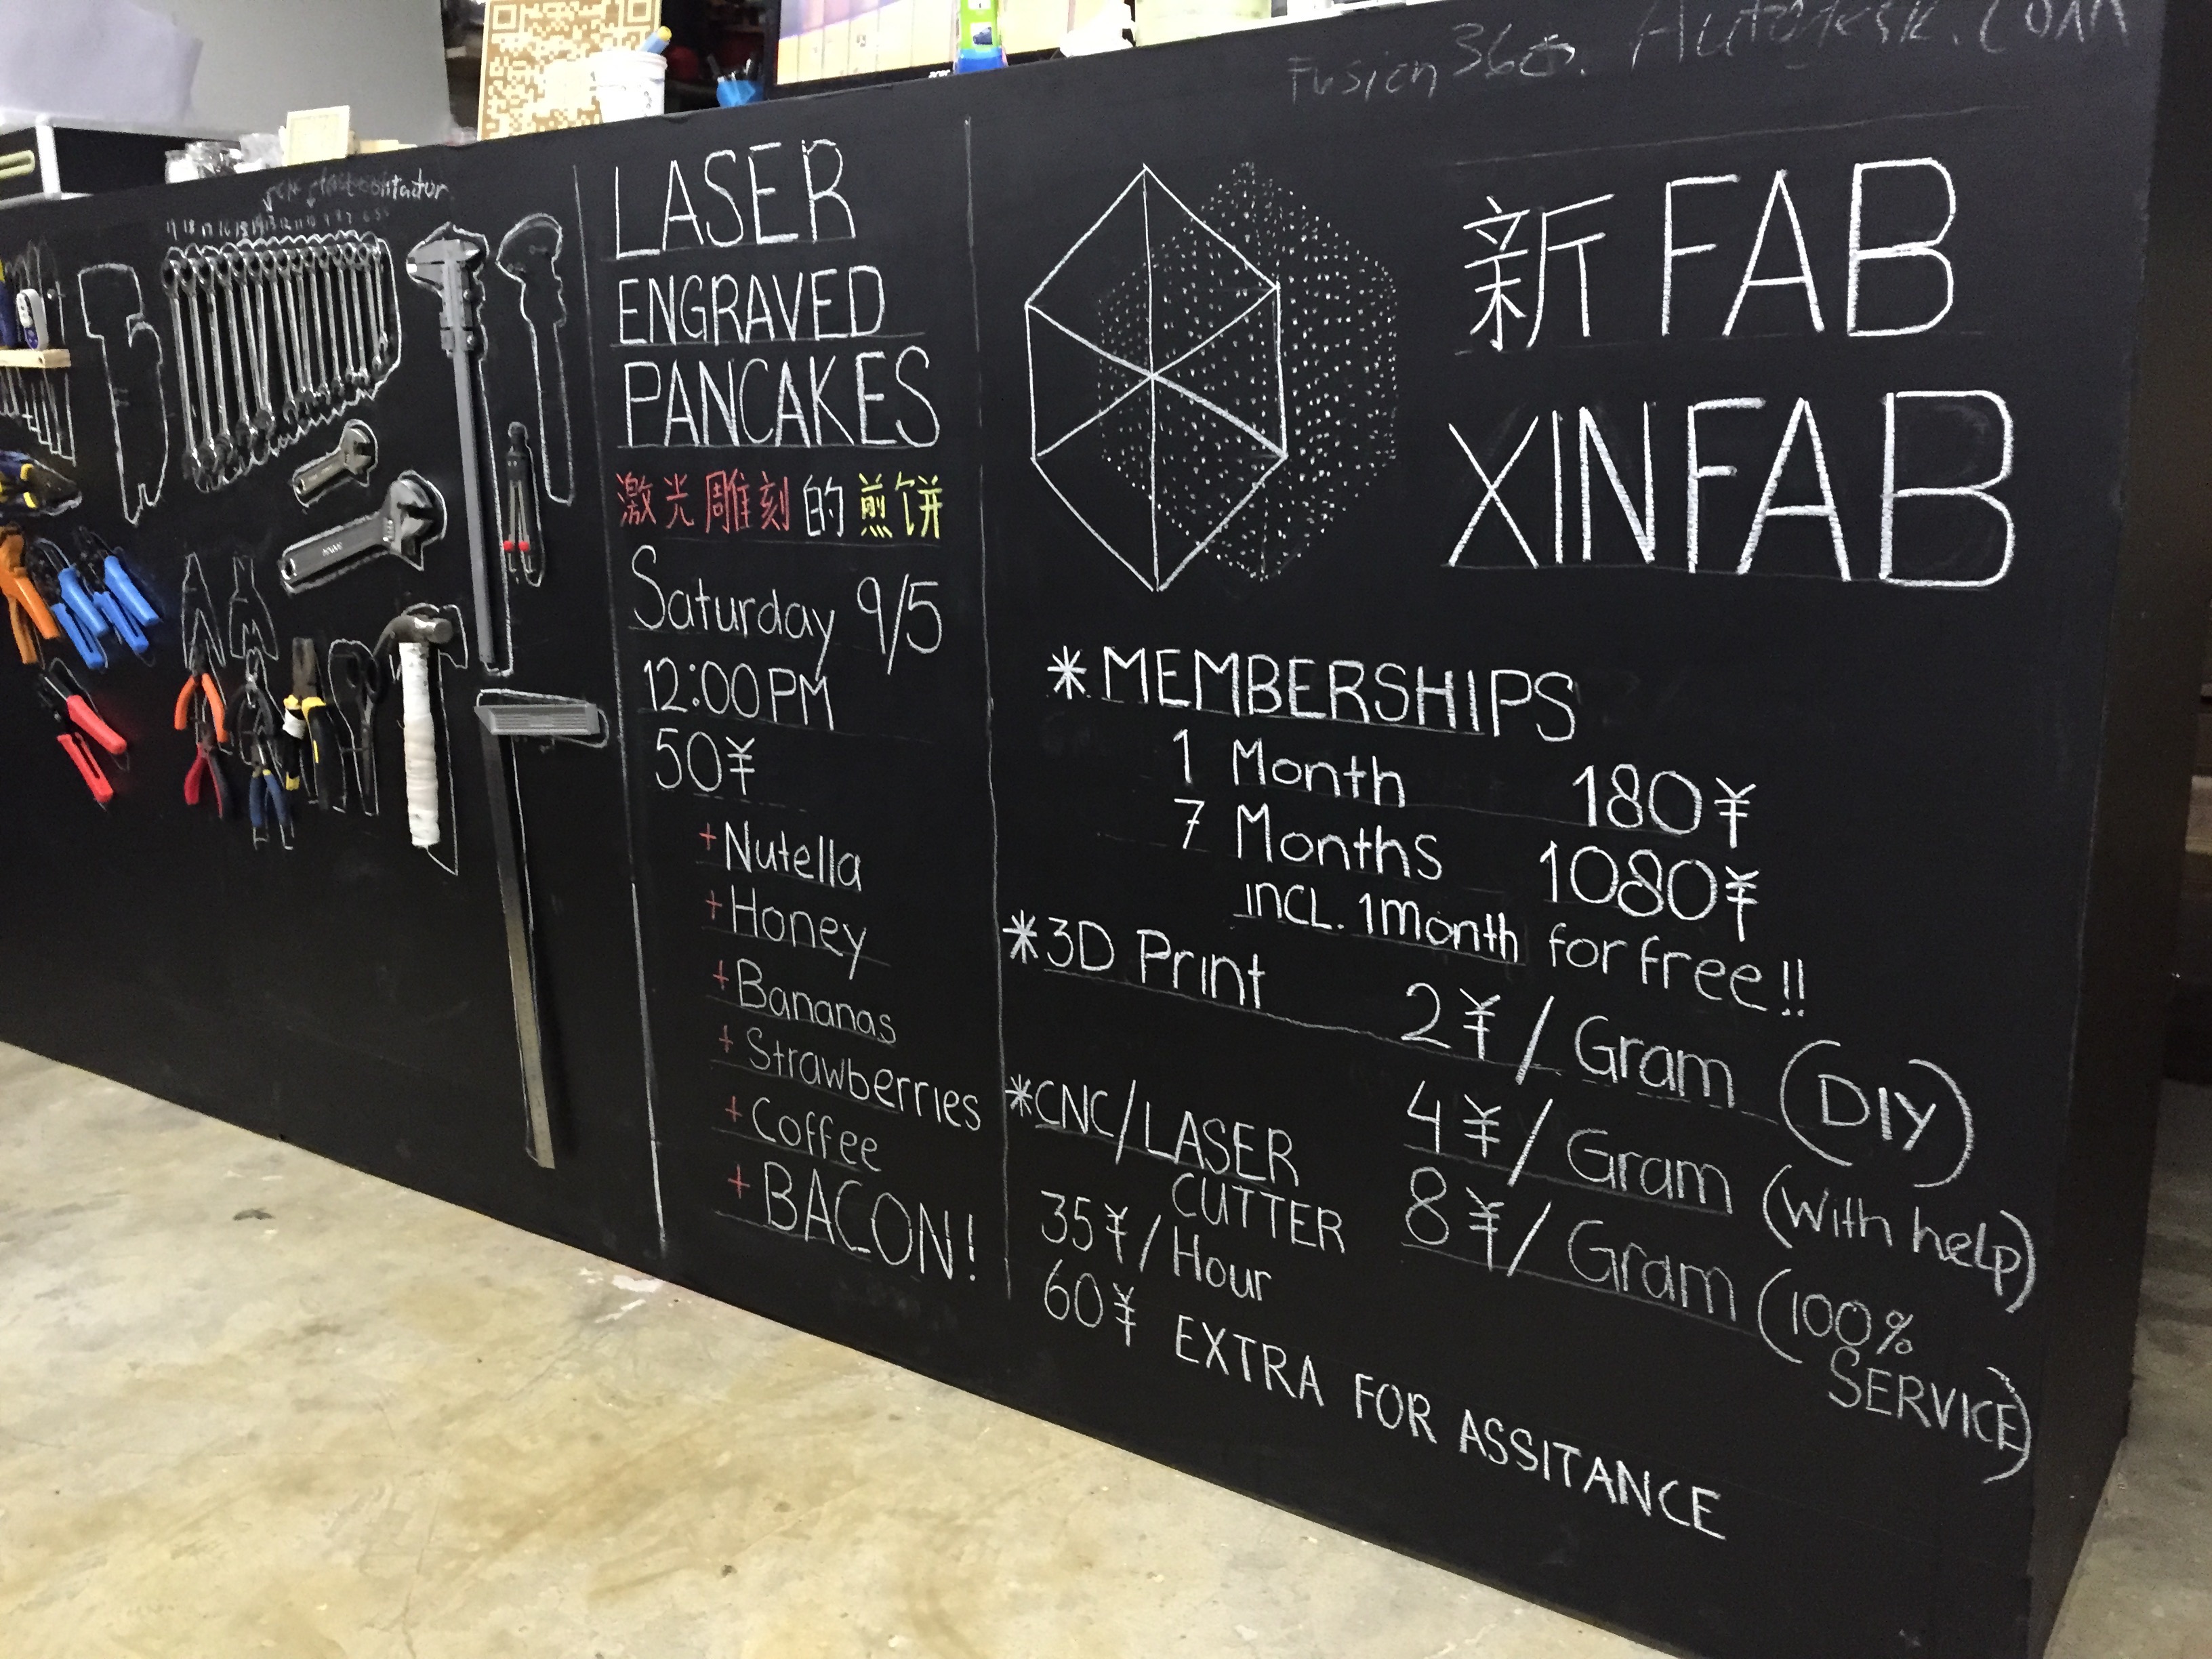 Fusion 360. Autodesk.com
LASER
ENGRAVED
PANCAKES
激光雕刻的煎饼
Saturday 9/5
12:00PM
50¥
+Nutella
+Honey
+Bananas
+Strawberries
+Coffee
+BACON!
新FAB
XINFAB
*MEMBERSHIPS
1 Month 180¥
7 Months 1080¥
INCL. 1month for free!!
*3D Print 2¥/Gram (DIY)
4¥/Gram (with help)
8¥/Gram (100%
SERVICE)
*CNC/LASER
CUTTER
35¥/Hour
60¥ EXTRA FOR ASSITANCE